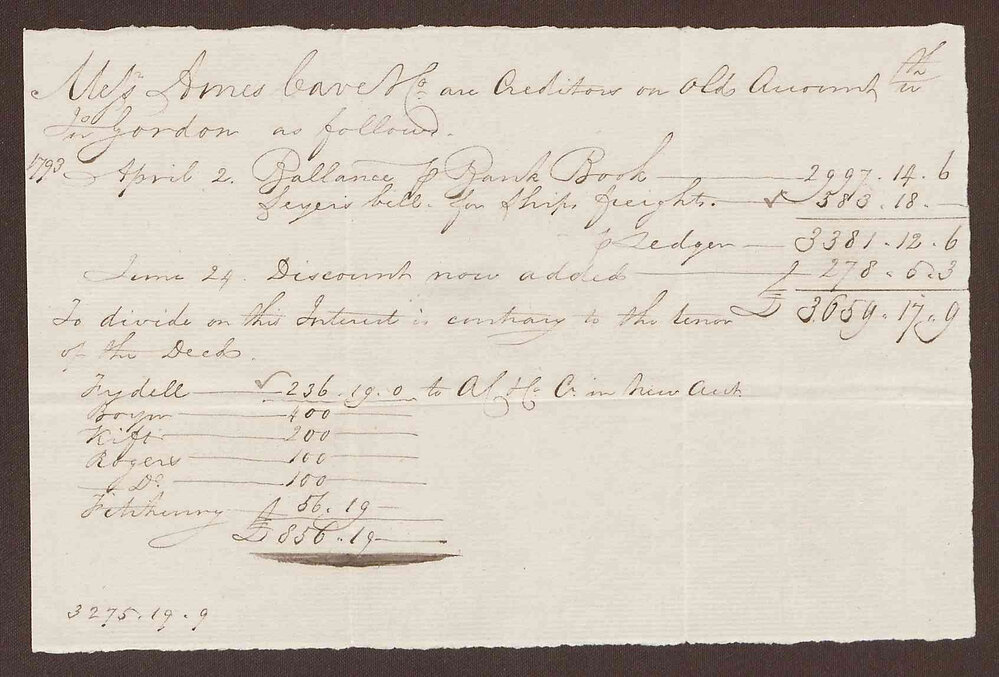 Messrs Ames Cave & Co. are Creditors on Old Account with
Jno Gordon as follows.
1793 April 2. Ballance p Bank Book — 2997.14.6
bill for Ships freights. — ✓ 383.18.—
p Ledger — 3381.12.6
June 24. Discount now added — 278.5.3
£ 3659.17.9
To divide on this Interest is contrary to the tenor
of the Deed.
Fydell — ✓ 236.19.0 to AC & Co. Cr. in New Acct.
— 400 —
Kift — 200 —
Rogers — 100 —
Do — 100 —
Fitzhenry 56.19 —
£ 856.19 —
3275.19.9